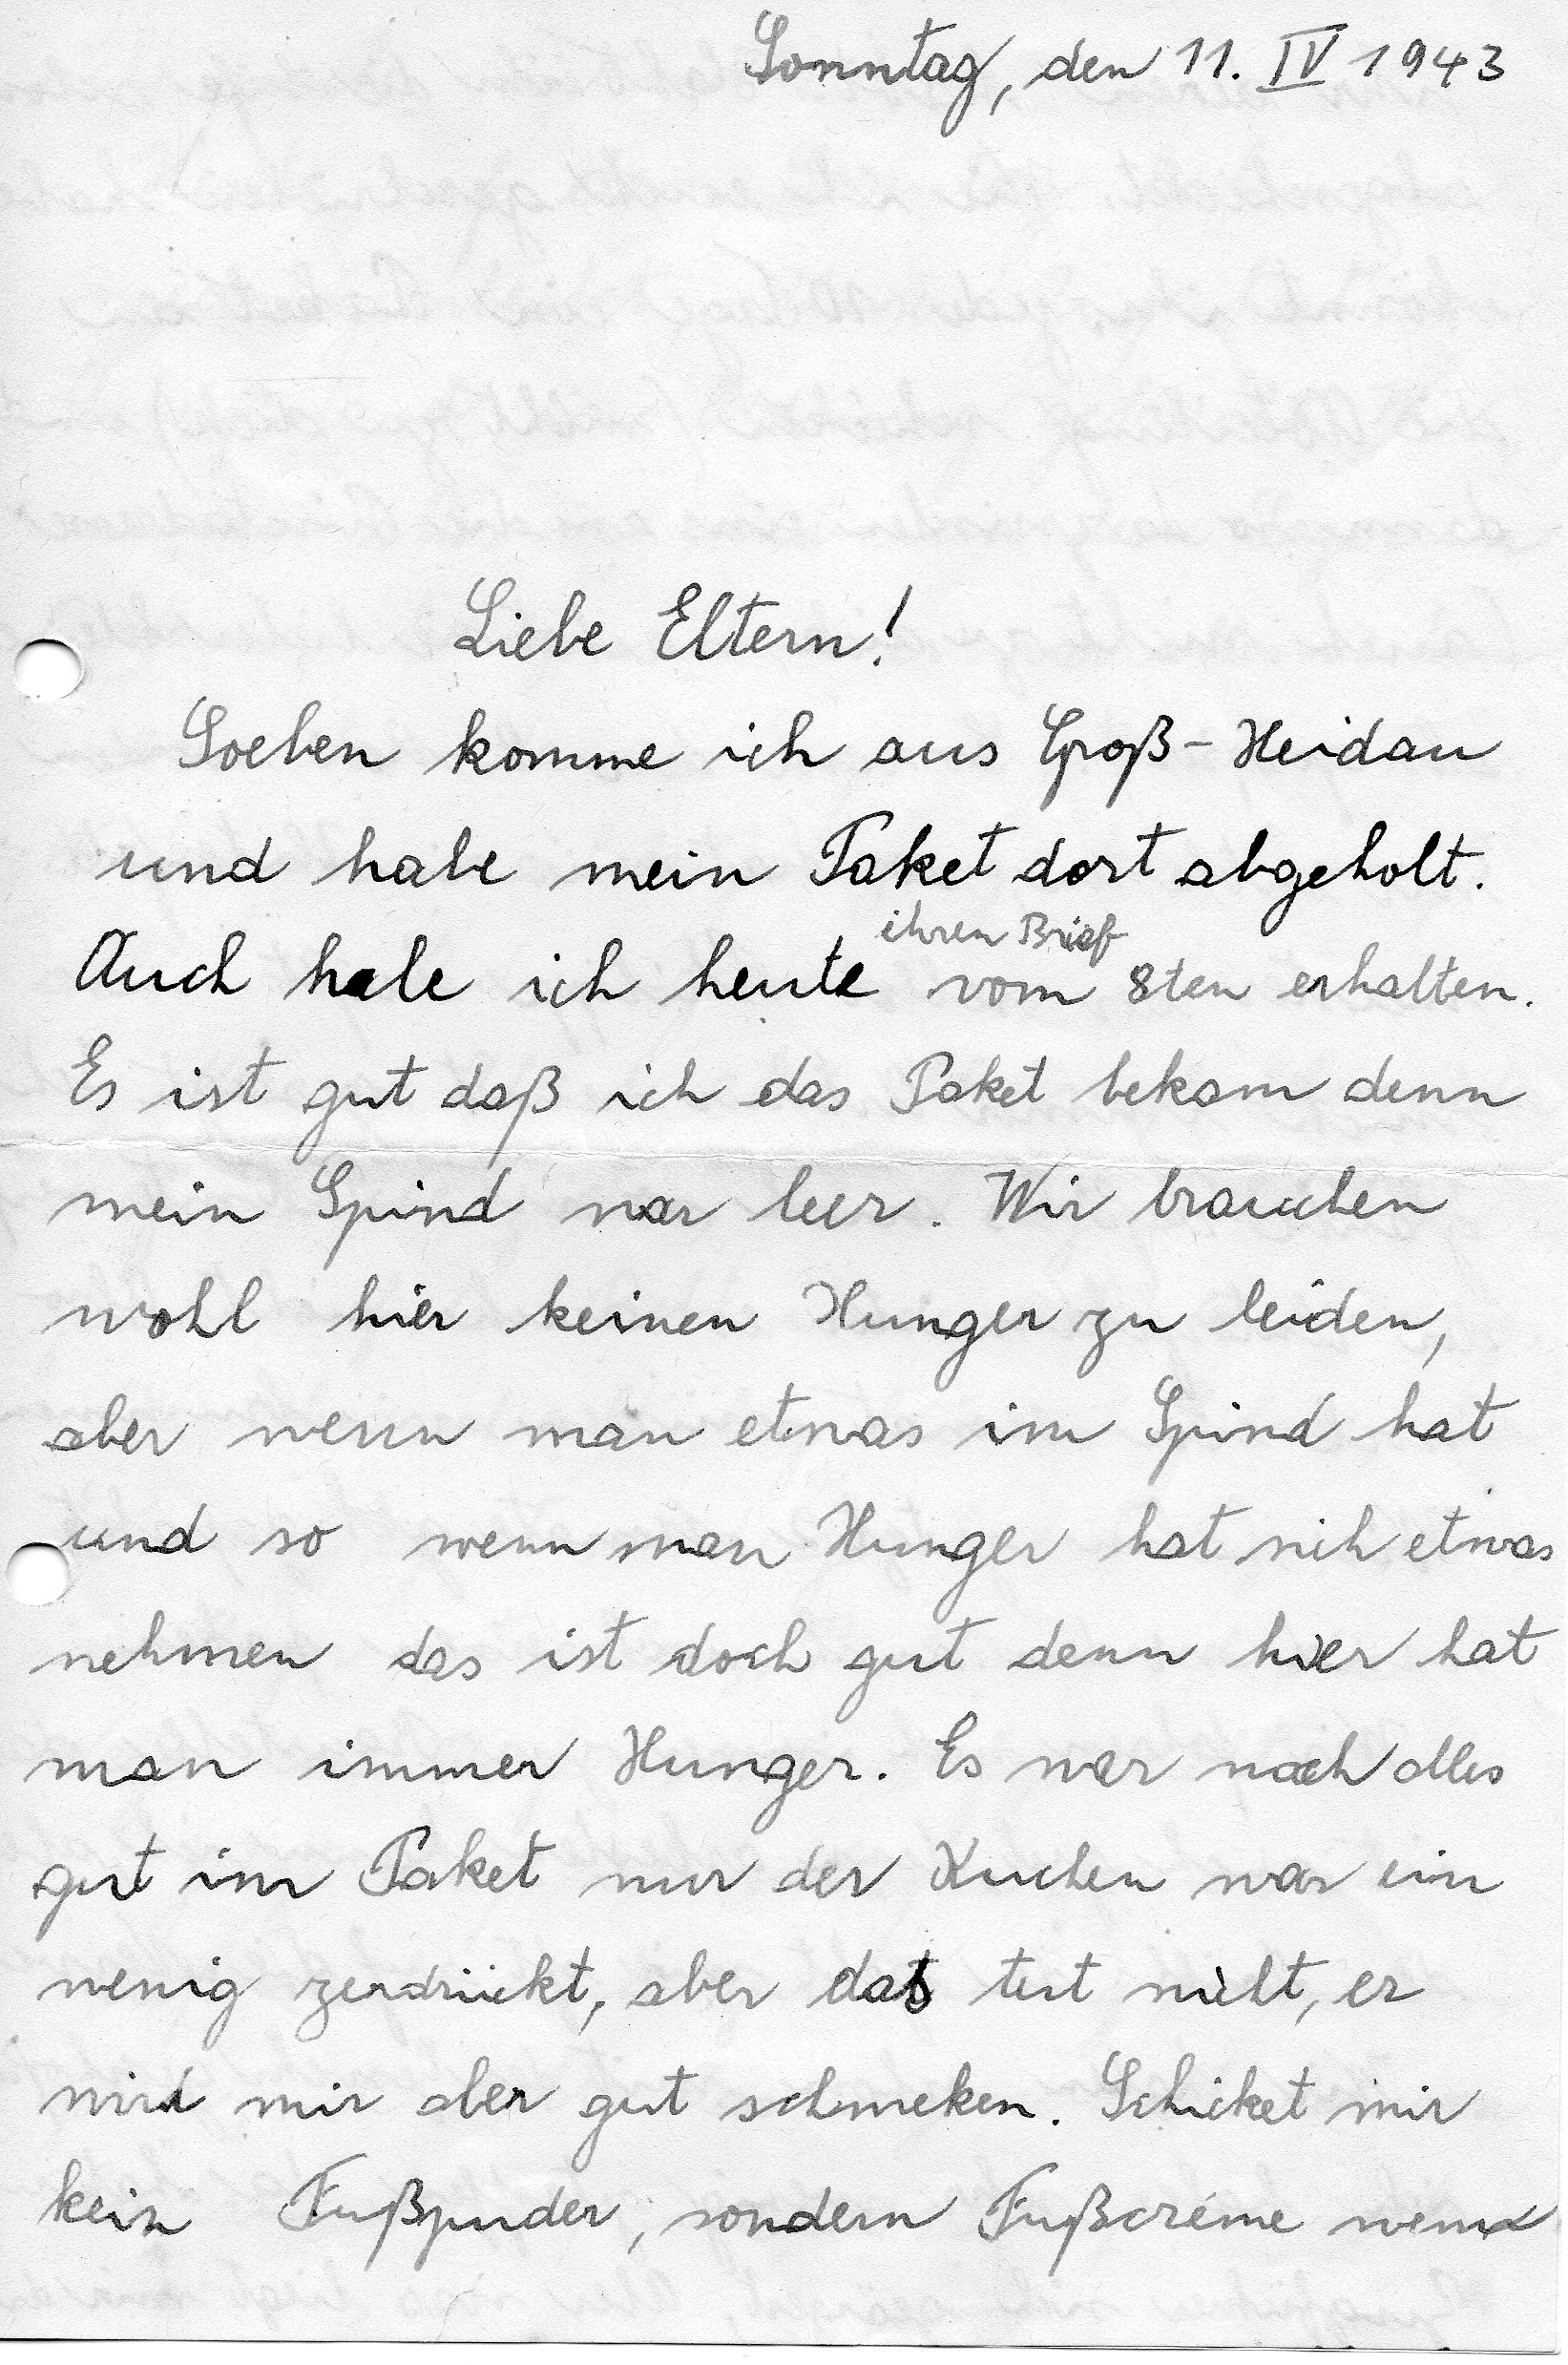 Sonntag, den 11. IV 1943
Liebe Eltern!
Soeben komme ich aus Groß-Heidau
und habe mein Paket dort abgeholt.
ihren Brief
Auch habe ich heute vom 8ten erhalten.
Es ist gut daß ich das Paket bekam denn
mein Spind war leer. Wir brauchen
wohl hier keinen Hunger zu leiden,
aber wenn man etwas im Spind hat
und so wenn man Hunger hat sich etwas
nehmen das ist doch gut denn hier hat
man immer Hunger. Es war noch alles
gut im Paket nur der Kuchen war ein
wenig zerdrückt, aber das tut nicht, er
wird mir aber gut schmeken. Schicket mir
kein Fußpuder, sondern Fußcréme wenn